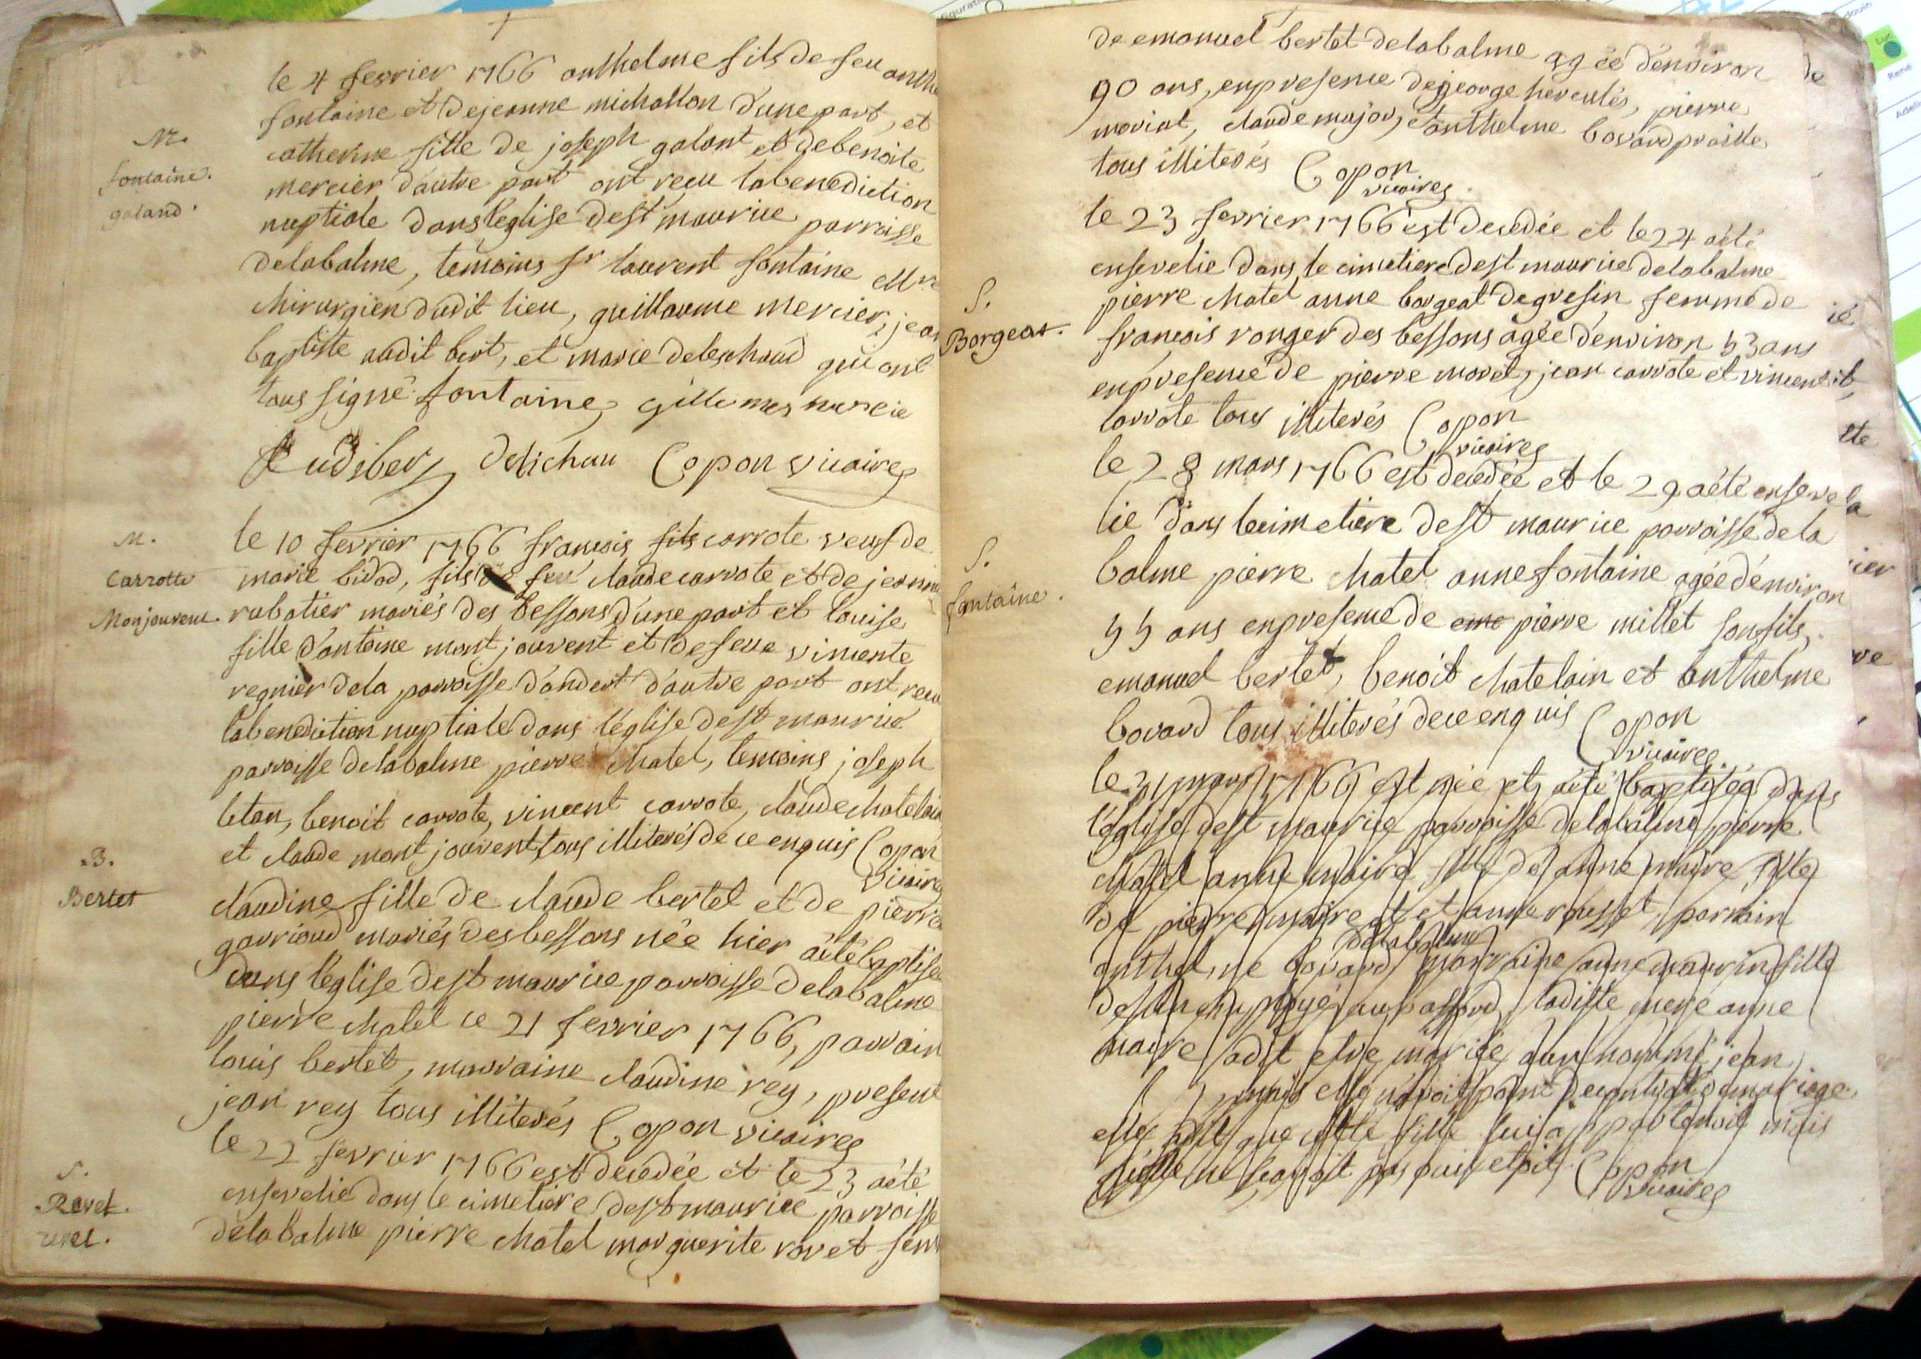 le 4 fevrier 1766 anthelme fils de feu anthe
fontaine et de jeanne michallon d'une part, et
catherine fille de joseph galant et de benoite
mercier d'autre part ont recu la benediction
nuptiale dans l'eglise de st maurice parroisse
de la balme, temoins sr laurent fontaine
chirurgien dudit lieu, guillaume mercier, jean
baptiste audit bert, et marie deleschaud qui ont
tous signé fontaine,
Copon vicaire
M.
fontaine.
galand.
le 10 fevrier 1766 francois fils carrote veuf de
marie bidod, fils de feu claude carrote et de jeanne
rabatier mariés des bessons d'une part et louise
fille d'antoine mont jouvent et de feue vincente
regnier de la parroisse d'andert d'autre part ont recu
la benediction nuptiale dans l'eglise de st maurice
parroisse de la balme pierre chatel, temoins joseph
benoit carrote, vincent carrote, claude chatelain
et claude mont jouvent, tous illiterés de ce enquis Copon
vicaire
M.
Carrotte
Monjouvent.
claudine fille de claude bertet et de pierre
gavrioud mariés des bessons née hier a été baptisée
dans l'eglise de st maurice parroisse de la balme
pierre chatel ce 21 fevrier 1766, parrain
louis bertet, marraine claudine rey, present
jean rey tous illiterés Copon vicaire
B.
Bertet
le 22 fevrier 1766 est decedée et le 23 a été
ensevelie dans le cimetiere de st maurice parroisse
de la balme pierre chatel marguerite ravet fem
S.
Ravet.
de emanuel bertet de la balme agée d'environ
90 ans, en presence de george hercules, pierre
moriat, claude major, et anthelme bovard
tous illiterés Copon
vicaire.
le 23 fevrier 1766 est decedée et le 24 a été
ensevelie dans le cimetiere de st maurice de la balme
pierre chatel anne borgeat de gresin femme de
francois ronger des bessons agée d'environ 53 ans
en presence de pierre moret, jean carrote et vincent
carrote tous illiterés Copon
vicaire
S.
Borgeat.
le 28 mars 1766 est decedée et le 29 a été enseve
lie dans le cimetiere de st maurice parroisse de la
balme pierre chatel anne fontaine agée d'environ
55 ans en presence de pierre millet son fils,
emanuel bertet, benoit chatelain et anthelme
bovard tous illiterés de ce enquis Copon
vicaire
S.
fontaine.
le 31 mars 1766 est née et a été baptisée dans
l'eglise de st maurice parroisse de la balme pierre
chatel anne maire fille de anne maire fille
de pierre maire et et anne rousset, parrain
de la balme
anthelme bovard marraine anne maurin fille
de un employé au bassord, ladite mere anne
maire a dit etre mariée a un nommé jean
mais elle n'avoit point de contrat de mariage
elle a dit que cette fille lui appartenoit mais
qu'elle ne scavoit pas qui etoit Copon
vicaire